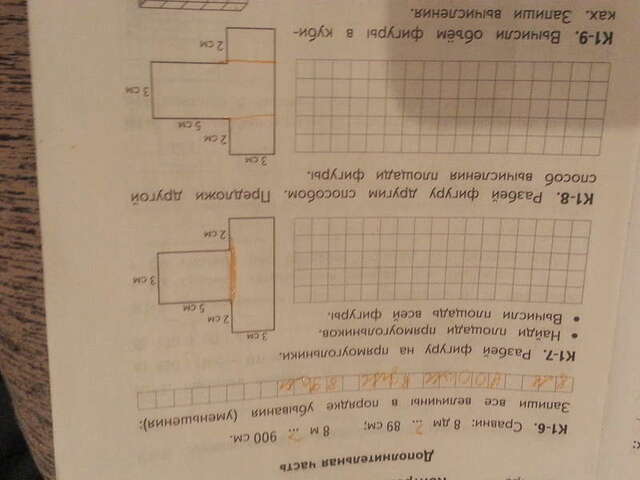 Дополнительная часть
К1-6. Сравни: 8 дм ... 89 см; 8 м ... 900 см.
Запиши все величины в порядке убывания (уменьшения):
К1-7. Разбей фигуру на прямоугольники.
• Найди площади прямоугольников.
• Вычисли площадь всей фигуры.
3 см
2 см
5 см
3 см
2 см
К1-8. Разбей фигуру другим способом. Предложи другой
способ вычисления площади фигуры.
3 см
2 см
5 см
3 см
2 см
К1-9. Вычисли объём фигуры в куби-
ках. Запиши вычисления.